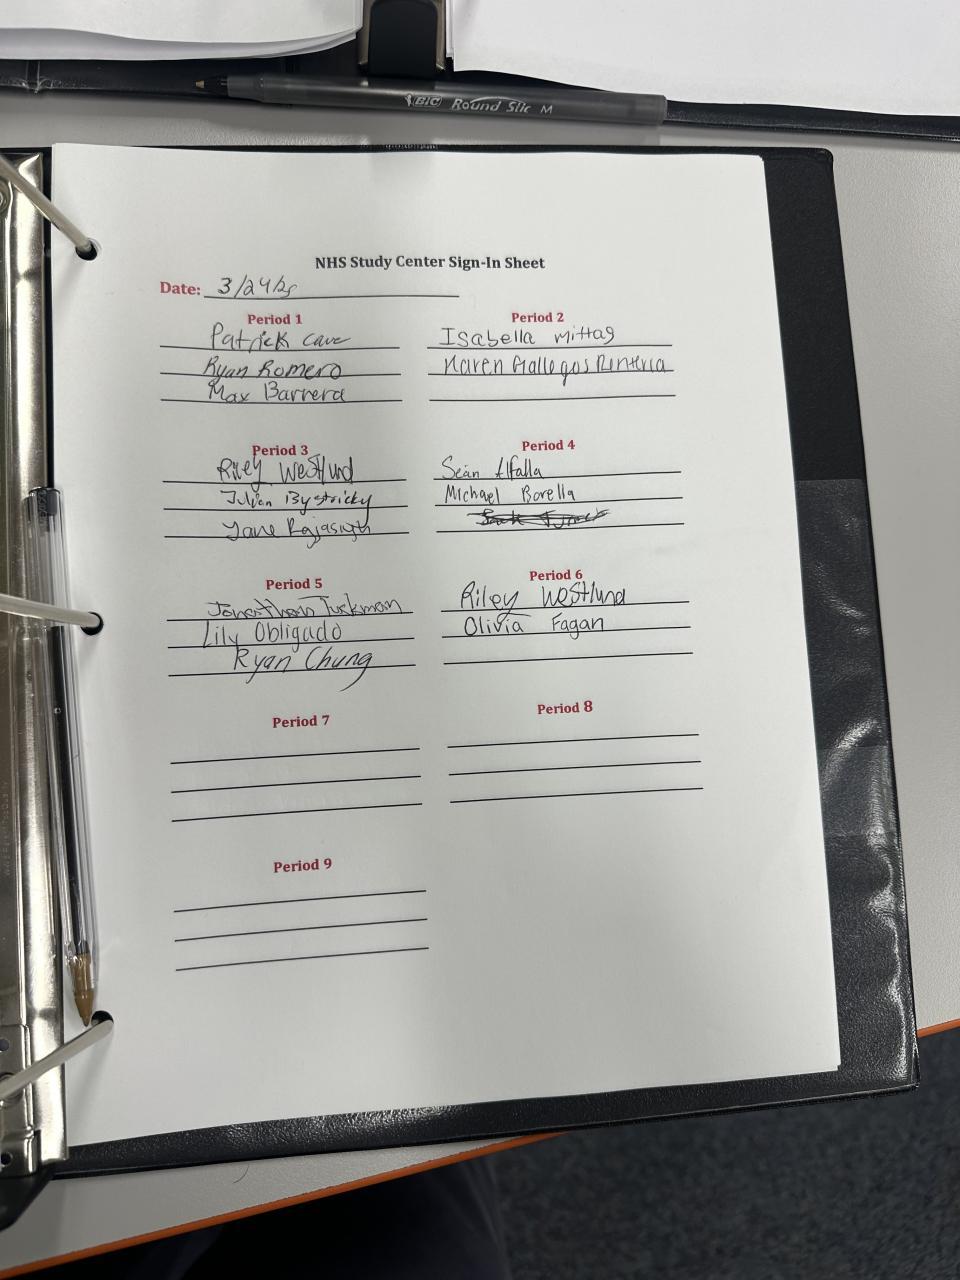 BIC Round Stic M
NHS Study Center Sign-In Sheet
Date: 3/24/25
Period 1
Patrick Cave
Ryan Romero
Max Barrera
Period 2
Isabella Mittag
Karen Gallegos Renteria
Period 3
Riley Westlund
Julian Bystricky
Period 4
Sean Alfalla
Michael Borella
Period 5
Jonathan Tuckman
Lily Obligado
Ryan Chung
Period 6
Riley Westlund
Olivia Fagan
Period 7
Period 8
Period 9